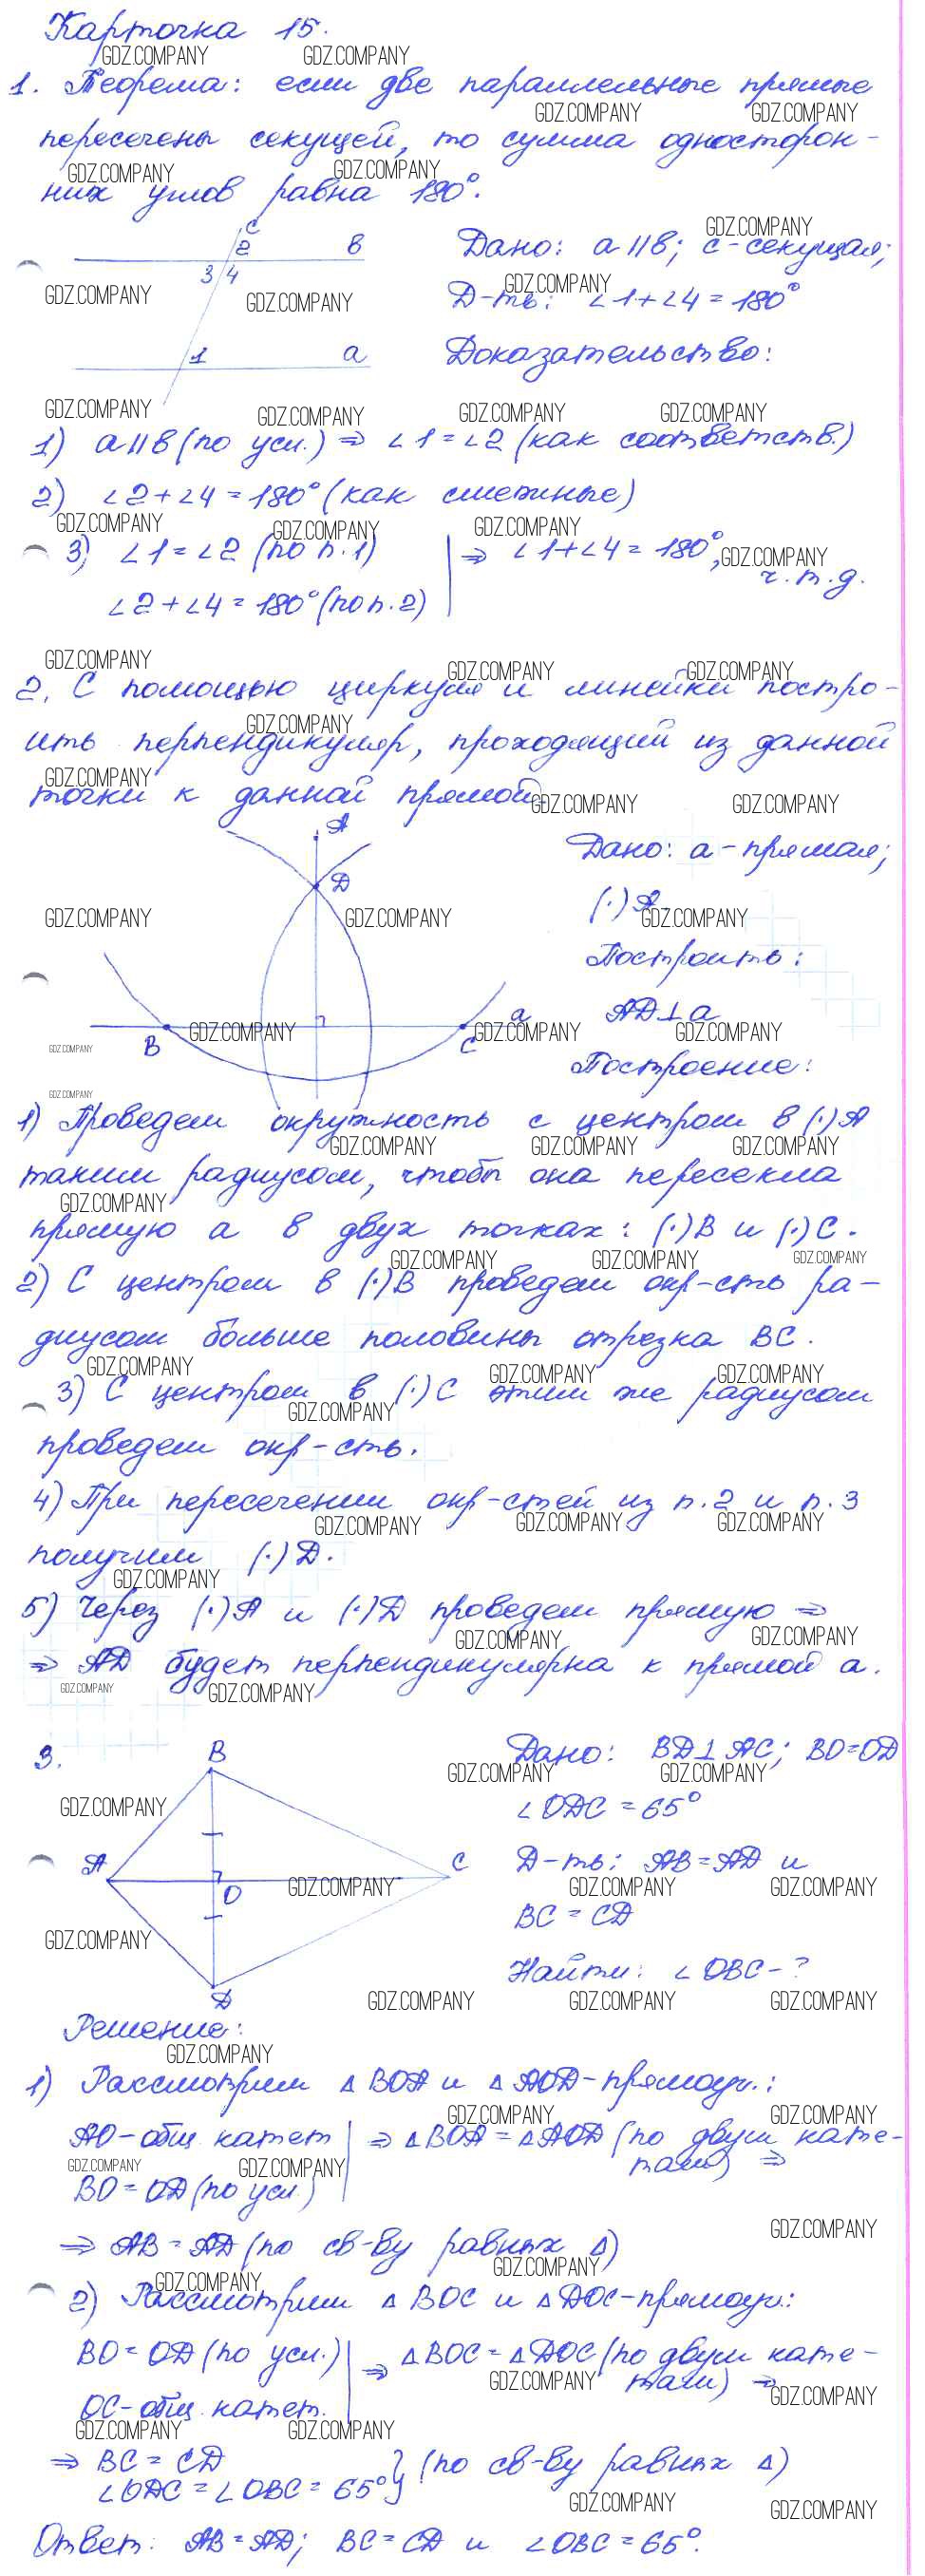 Карточка 15.
1. Теорема: если две параллельные прямые
пересечены секущей, то сумма односторон-
них углов равна 180°.
c
2
в
3 4
1
a
Дано: a∥в; c-секущая;
Д-ть: ∠1+∠4=180°
Доказательство:
1) a∥в (по усл.) ⇒ ∠1=∠2 (как соответств.)
2) ∠2+∠4=180° (как смежные)
3) ∠1=∠2 (по п.1) | ⇒ ∠1+∠4=180°,
ч.т.д.
∠2+∠4=180° (по п.2)
2. С помощью циркуля и линейки постро-
ить перпендикуляр, проходящий из данной
точки к данной прямой.
А
Д
В
С
a
Дано: a-прямая;
(·)А.
Построить:
АД⊥a
Построение:
1) Проведем окружность с центром в (·)А
таким радиусом, чтобы она пересекла
прямую a в двух точках: (·)В и (·)С.
2) С центром в (·)В проведем окр-сть ра-
диусом больше половины отрезка ВС.
3) С центром в (·)С этим же радиусом
проведем окр-сть.
4) При пересечении окр-стей из п.2 и п.3
получим (·)Д.
5) Через (·)А и (·)Д проведем прямую ⇒
⇒ АД будет перпендикулярна к прямой a.
3.
В
А
О
С
Д
Дано: ВД⊥АС; ВО=ОД
∠ОДС=65°
Д-ть: АВ=АД и
ВС=СД
Найти: ∠ОВС-?
Решение:
1) Рассмотрим △ВОА и △АОД-прямоуг.:
АО-общ. катет | ⇒ △ВОА=△АОД (по двум кате-
там) ⇒
ВО=ОД (по усл.)
⇒ АВ=АД (по св-ву равных △)
2) Рассмотрим △ВОС и △ДОС-прямоуг.:
ВО=ОД (по усл.) | ⇒ △ВОС=△ДОС (по двум кате-
там) ⇒
ОС-общ. катет.
⇒ ВС=СД } (по св-ву равных △)
∠ОДС=∠ОВС=65°
Ответ: АВ=АД; ВС=СД и ∠ОВС=65°.
GDZ.COMPANY